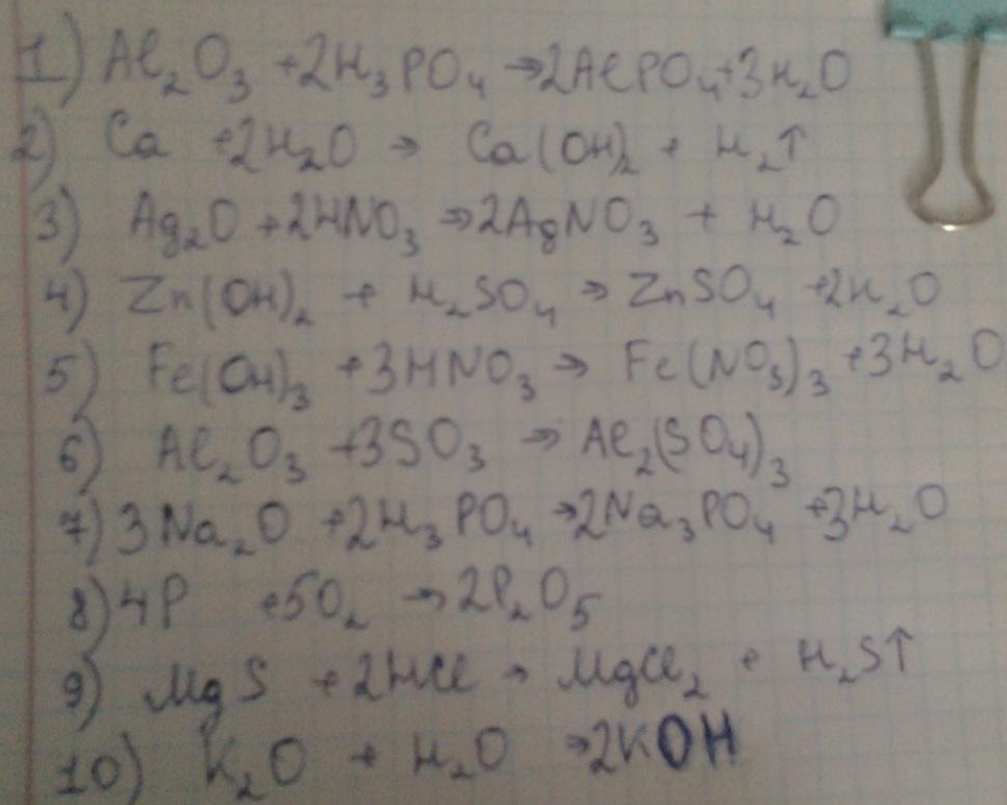 1) Al₂O₃ +2H₃PO₄ →2AlPO₄+3H₂O
2) Ca +2H₂O → Ca(OH)₂ + H₂↑
3) Ag₂O +2HNO₃ →2AgNO₃ + H₂O
4) Zn(OH)₂ + H₂SO₄ → ZnSO₄ +2H₂O
5) Fe(OH)₃ +3HNO₃ → Fe(NO₃)₃ +3H₂O
6) Al₂O₃ +3SO₃ → Al₂(SO₄)₃
7) 3Na₂O +2H₃PO₄ →2Na₃PO₄ +3H₂O
8) 4P +5O₂ →2P₂O₅
9) MgS +2HCl → MgCl₂ + H₂S↑
10) K₂O + H₂O →2KOH